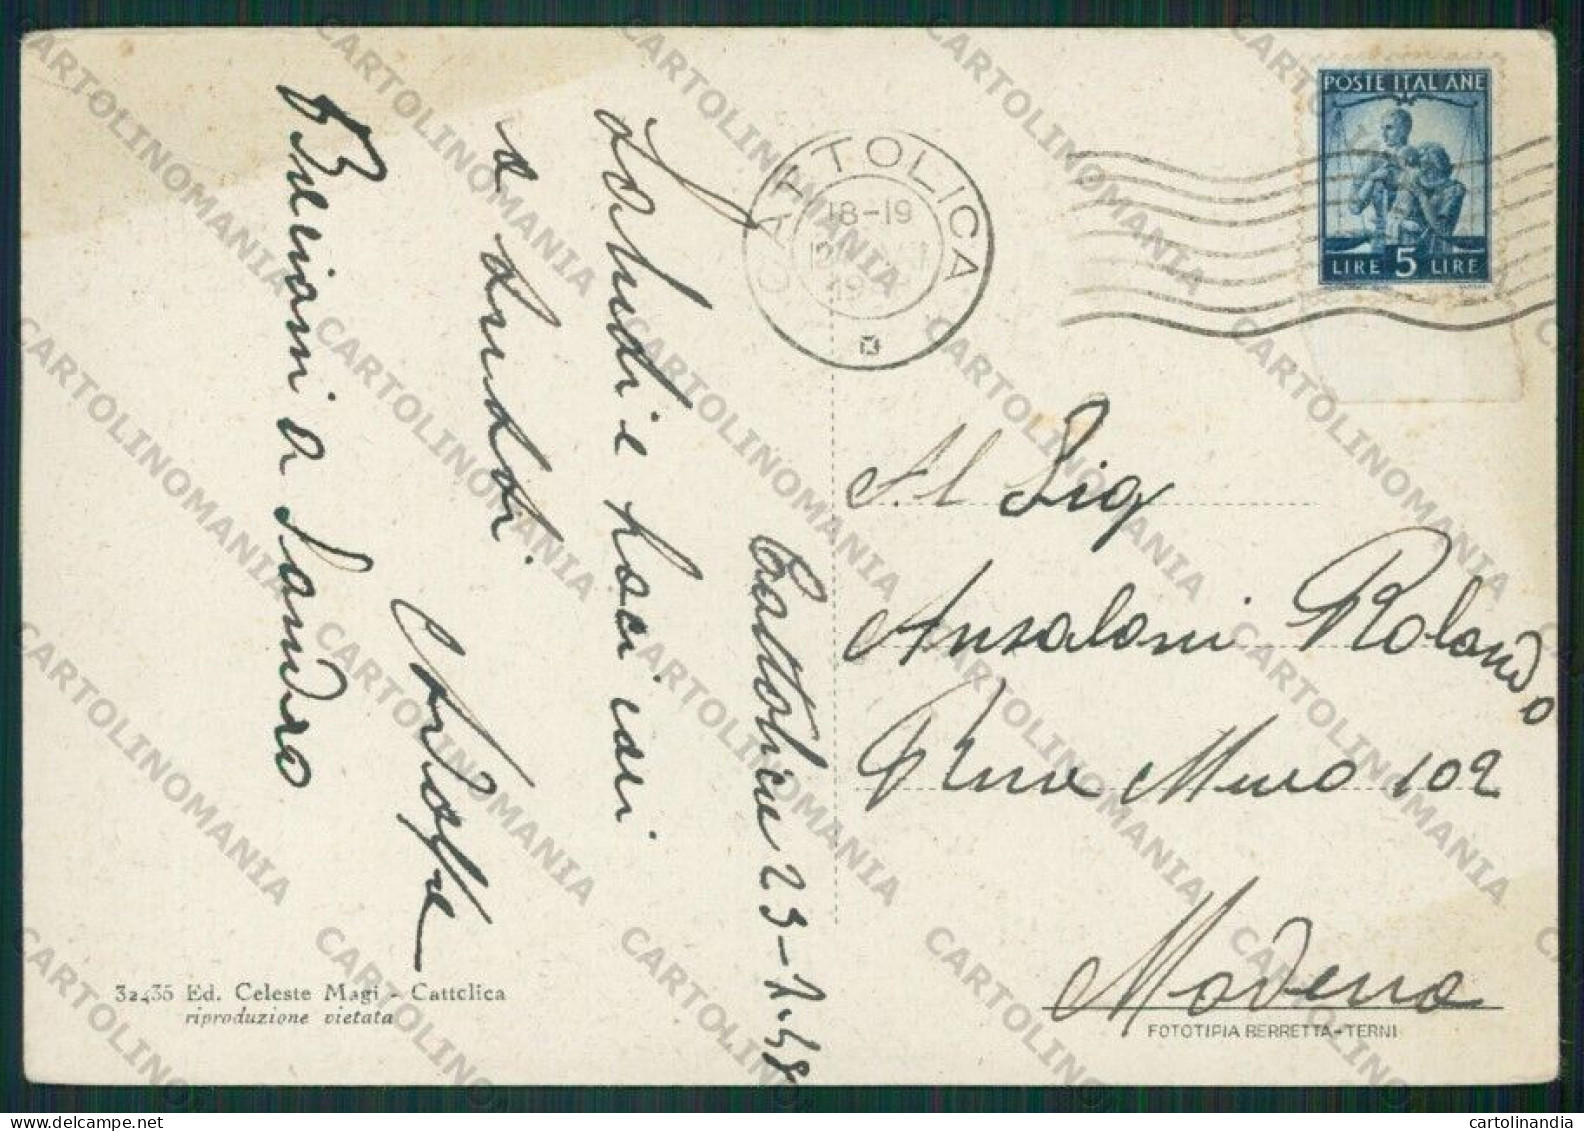 POSTE ITALIANE
LIRE 5 LIRE
CATTOLICA
18-19
Al Sig
Ansaloni Rolando
Rua Muro 102
Modena
FOTOTIPIA BERRETTA-TERNI
Cattolica 23-7.48
Saluti e baci cari
a tutti
Bacioni a Sandro
32435 Ed. Celeste Magi - Cattolica
riproduzione vietata
CARTOLINOMANIA
cartolinandia